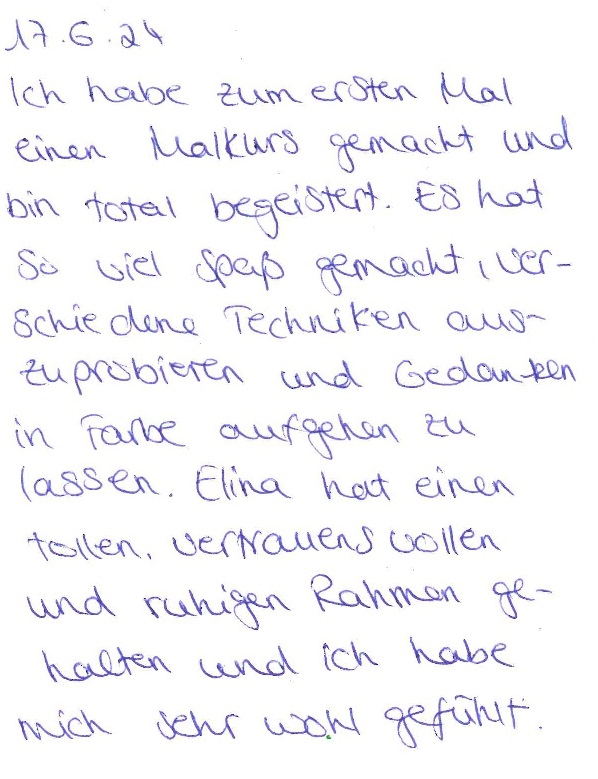 17.6.24
Ich habe zum ersten Mal
einen Malkurs gemacht und
bin total begeistert. Es hat
so viel Spaß gemacht, ver-
schiedene Techniken aus-
zuprobieren und Gedanken
in Farbe aufgehen zu
lassen. Elina hat einen
tollen, vertrauensvollen
und ruhigen Rahmen ge-
halten und ich habe
mich sehr wohl gefühlt.